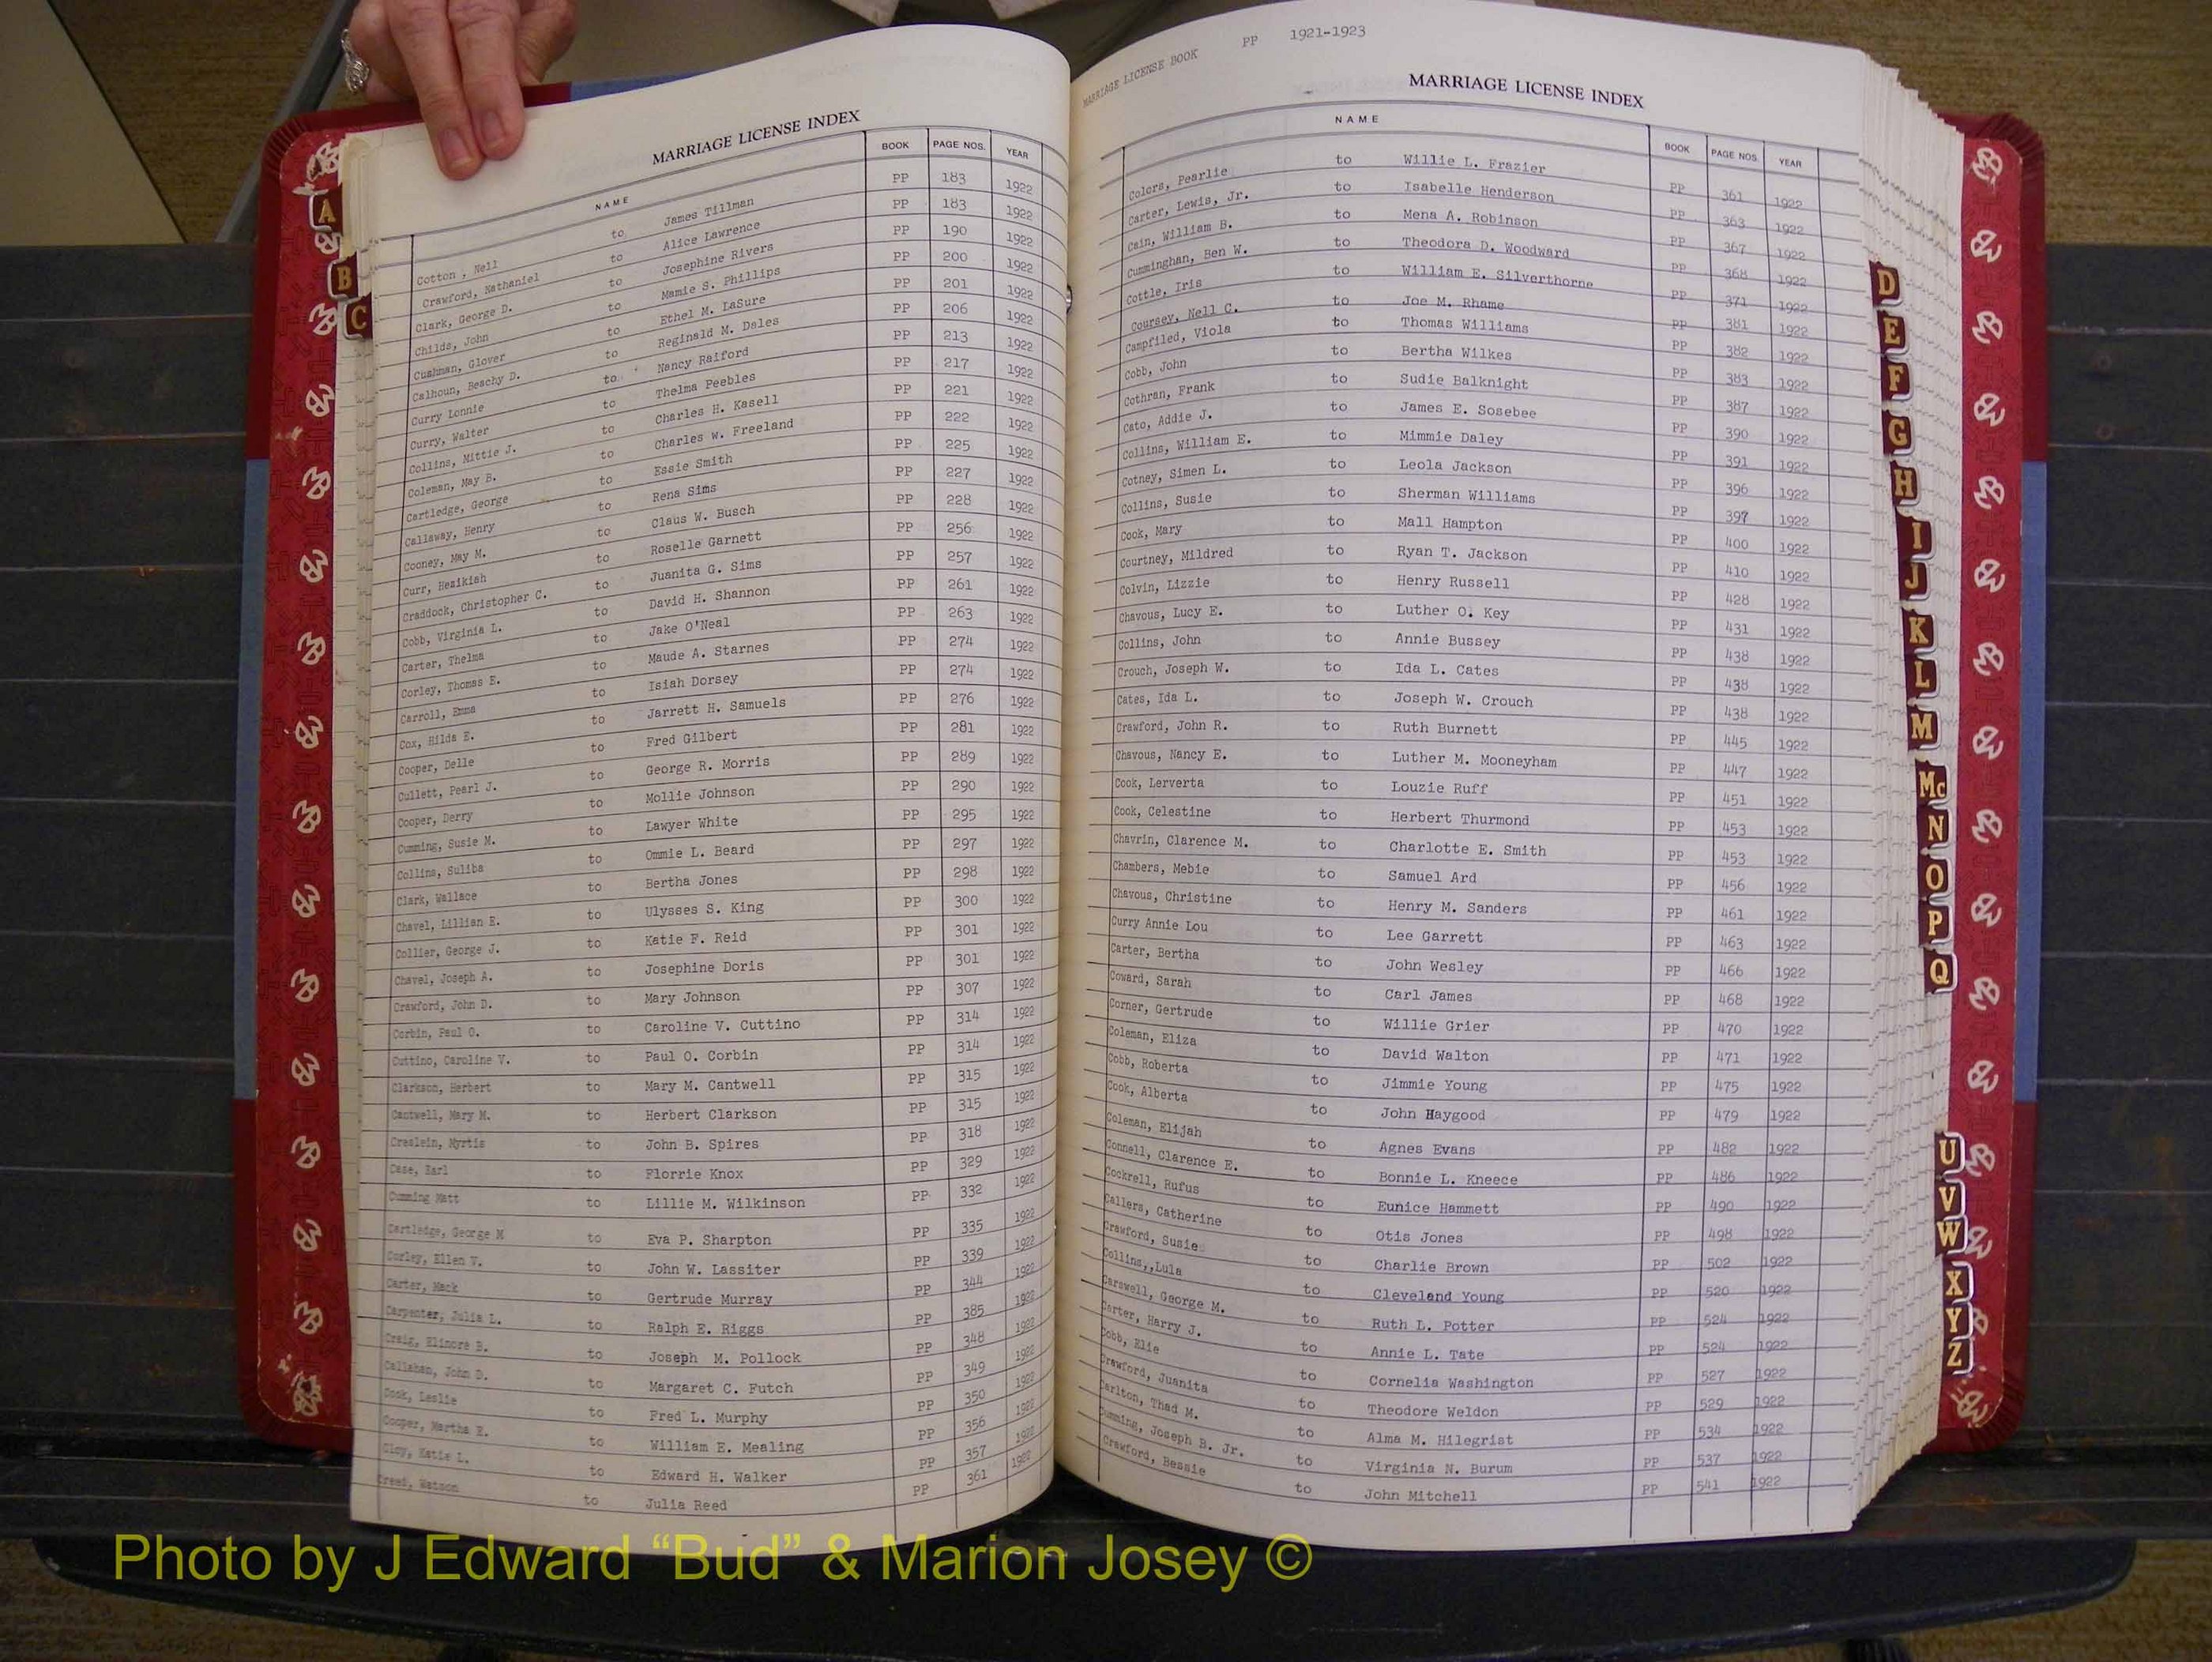 MARRIAGE LICENSE INDEX
NAME BOOK PAGE NOS. YEAR
Cotton , Nell to James Tillman PP 183 1922
Crawford, Nathaniel to Alice Lawrence PP 183 1922
Clark, George D. to Josephine Rivers PP 190 1922
Childs, John to Mamie S. Phillips PP 200 1922
Cushman, Glover to Ethel M. LaSure PP 201 1922
Calhoun, Beachy D. to Reginald M. Dales PP 206 1922
Curry Lonnie to Nancy Raiford PP 213 1922
Curry, Walter to Thelma Peebles PP 217 1922
Collins, Mittie J. to Charles H. Kasell PP 221 1922
Coleman, May B. to Charles W. Freeland PP 222 1922
Cartledge, George to Essie Smith PP 225 1922
Callaway, Henry to Rena Sims PP 227 1922
Cooney, May M. to Claus W. Busch PP 228 1922
Curr, Hezikiah to Roselle Garnett PP 256 1922
Craddock, Christopher C. to Juanita G. Sims PP 257 1922
Cobb, Virginia L. to David H. Shannon PP 261 1922
Carter, Thelma to Jake O'Neal PP 263 1922
Corley, Thomas E. to Maude A. Starnes PP 274 1922
Carroll, Emma to Isiah Dorsey PP 274 1922
Cox, Hilda E. to Jarrett H. Samuels PP 276 1922
Cooper, Delle to Fred Gilbert PP 281 1922
Cullett, Pearl J. to George R. Morris PP 289 1922
Cooper, Derry to Mollie Johnson PP 290 1922
Cumming, Susie M. to Lawyer White PP 295 1922
Collins, Suliba to Ommie L. Beard PP 297 1922
Clark, Wallace to Bertha Jones PP 298 1922
Chavel, Lillian E. to Ulysses S. King PP 300 1922
Collier, George J. to Katie F. Reid PP 301 1922
Chavel, Joseph A. to Josephine Doris PP 301 1922
Crawford, John D. to Mary Johnson PP 307 1922
Corbin, Paul O. to Caroline V. Cuttino PP 314 1922
Cuttino, Caroline V. to Paul O. Corbin PP 314 1922
Clarkson, Herbert to Mary M. Cantwell PP 315 1922
Cantwell, Mary M. to Herbert Clarkson PP 315 1922
Creslein, Myrtis to John B. Spires PP 318 1922
Case, Earl to Florrie Knox PP 329 1922
Cumming Matt to Lillie M. Wilkinson PP 332 1922
Cartledge, George M to Eva P. Sharpton PP 335 1922
Corley, Ellen V. to John W. Lassiter PP 339 1922
Carter, Mack to Gertrude Murray PP 344 1922
Carpenter, Julia L. to Ralph E. Riggs PP 385 1922
Craig, Elinore B. to Joseph M. Pollock PP 348 1922
Callahan, John D. to Margaret C. Futch PP 349 1922
Cook, Leslie to Fred L. Murphy PP 350 1922
Cooper, Martha E. to William E. Mealing PP 356 1922
Cloy, Katie L. to Edward H. Walker PP 357 1922
Creed, Watson to Julia Reed PP 361 1922
A
B
C
MARRIAGE LICENSE BOOK PP 1921-1923
MARRIAGE LICENSE INDEX
NAME BOOK PAGE NOS. YEAR
Colors, Pearlie to Willie L. Frazier PP 361 1922
Carter, Lewis, Jr. to Isabelle Henderson PP 363 1922
Cain, William B. to Mena A. Robinson PP 367 1922
Cumminghan, Ben W. to Theodora D. Woodward PP 368 1922
Cottle, Iris to William E. Silverthorne PP 371 1922
Coursey, Nell C. to Joe M. Rhame PP 381 1922
Campfiled, Viola to Thomas Williams PP 382 1922
Cobb, John to Bertha Wilkes PP 383 1922
Cothran, Frank to Sudie Balknight PP 387 1922
Cato, Addie J. to James E. Sosebee PP 390 1922
Collins, William E. to Mimmie Daley PP 391 1922
Cotney, Simen L. to Leola Jackson PP 396 1922
Collins, Susie to Sherman Williams PP 397 1922
Cook, Mary to Mall Hampton PP 400 1922
Courtney, Mildred to Ryan T. Jackson PP 410 1922
Colvin, Lizzie to Henry Russell PP 428 1922
Chavous, Lucy E. to Luther O. Key PP 431 1922
Collins, John to Annie Bussey PP 438 1922
Crouch, Joseph W. to Ida L. Cates PP 438 1922
Cates, Ida L. to Joseph W. Crouch PP 438 1922
Crawford, John R. to Ruth Burnett PP 445 1922
Chavous, Nancy E. to Luther M. Mooneyham PP 447 1922
Cook, Lerverta to Louzie Ruff PP 451 1922
Cook, Celestine to Herbert Thurmond PP 453 1922
Chavrin, Clarence M. to Charlotte E. Smith PP 453 1922
Chambers, Mebie to Samuel Ard PP 456 1922
Chavous, Christine to Henry M. Sanders PP 461 1922
Curry Annie Lou to Lee Garrett PP 463 1922
Carter, Bertha to John Wesley PP 466 1922
Coward, Sarah to Carl James PP 468 1922
Corner, Gertrude to Willie Grier PP 470 1922
Coleman, Eliza to David Walton PP 471 1922
Cobb, Roberta to Jimmie Young PP 475 1922
Cook, Alberta to John Haygood PP 479 1922
Coleman, Elijah to Agnes Evans PP 482 1922
Connell, Clarence E. to Bonnie L. Kneece PP 486 1922
Cockrell, Rufus to Eunice Hammett PP 490 1922
Callers, Catherine to Otis Jones PP 498 1922
Crawford, Susie to Charlie Brown PP 502 1922
Collins,,Lula to Cleveland Young PP 520 1922
Carswell, George M. to Ruth L. Potter PP 524 1922
Carter, Harry J. to Annie L. Tate PP 524 1922
Cobb, Elie to Cornelia Washington PP 527 1922
Crawford, Juanita to Theodore Weldon PP 529 1922
Carlton, Thad M. to Alma M. Hilegrist PP 534 1922
Cumming, Joseph B. Jr. to Virginia N. Burum PP 537 1922
Crawford, Bessie to John Mitchell PP 541 1922
D
E
F
G
H
I
J
K
L
M
Mc
N
O
P
Q
U
V
W
X
Y
Z
Photo by J Edward “Bud” & Marion Josey ©